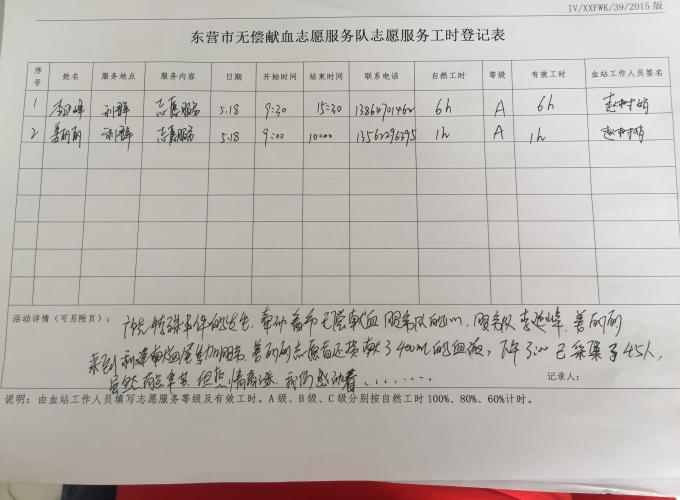 IV/XXFWK/39/2015版
东营市无偿献血志愿服务队志愿服务工时登记表
序号 姓名 服务地点 服务内容 日期 开始时间 结束时间 联系电话 自然工时 等级 有效工时 血站工作人员签名
1 李延峰 利群 志愿服务 5.18 9:30 15:30 6h A 6h
2 姜丽丽 利群 志愿服务 5.18 9:00 10:00 13562296395 1h A 1h
活动详情（可另附页）： 特殊事件的发生，牵动着市无偿献血服务队的心，服务队李延峰、姜丽丽
来到利群献血屋参加服务，姜丽丽志愿者还捐献了400ml的血液，下午3:00已采集了45人，
虽然 辛苦，但 热情高涨，我们感动着......
记录人：
说明：由血站工作人员填写志愿服务等级及有效工时。A级、B级、C级分别按自然工时100%、80%、60%计时。